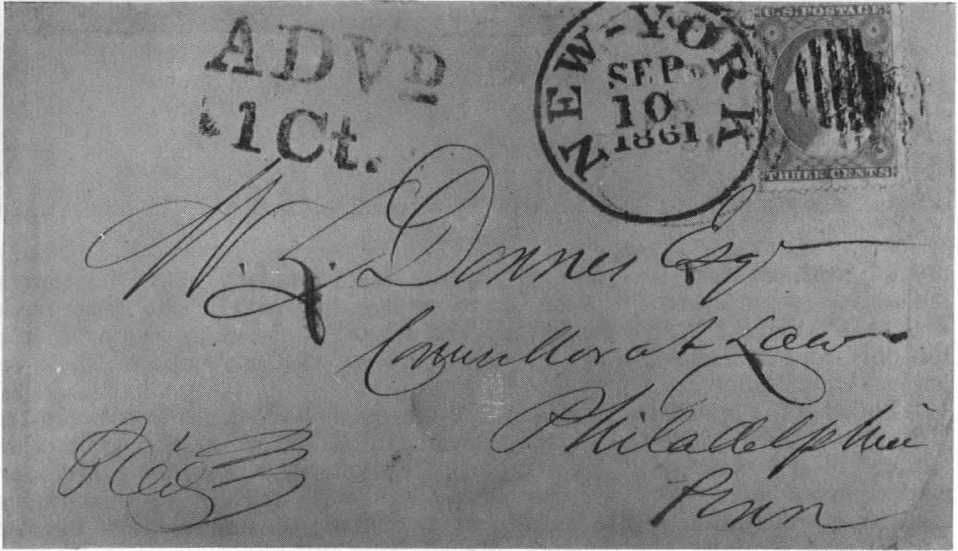 ADVD
1Ct.
NEW-YORK
SEP
10
1861
U.S. POSTAGE
THREE CENTS
W. L. Donner Esqr
Councillor at Law
Philadelphia
Penn